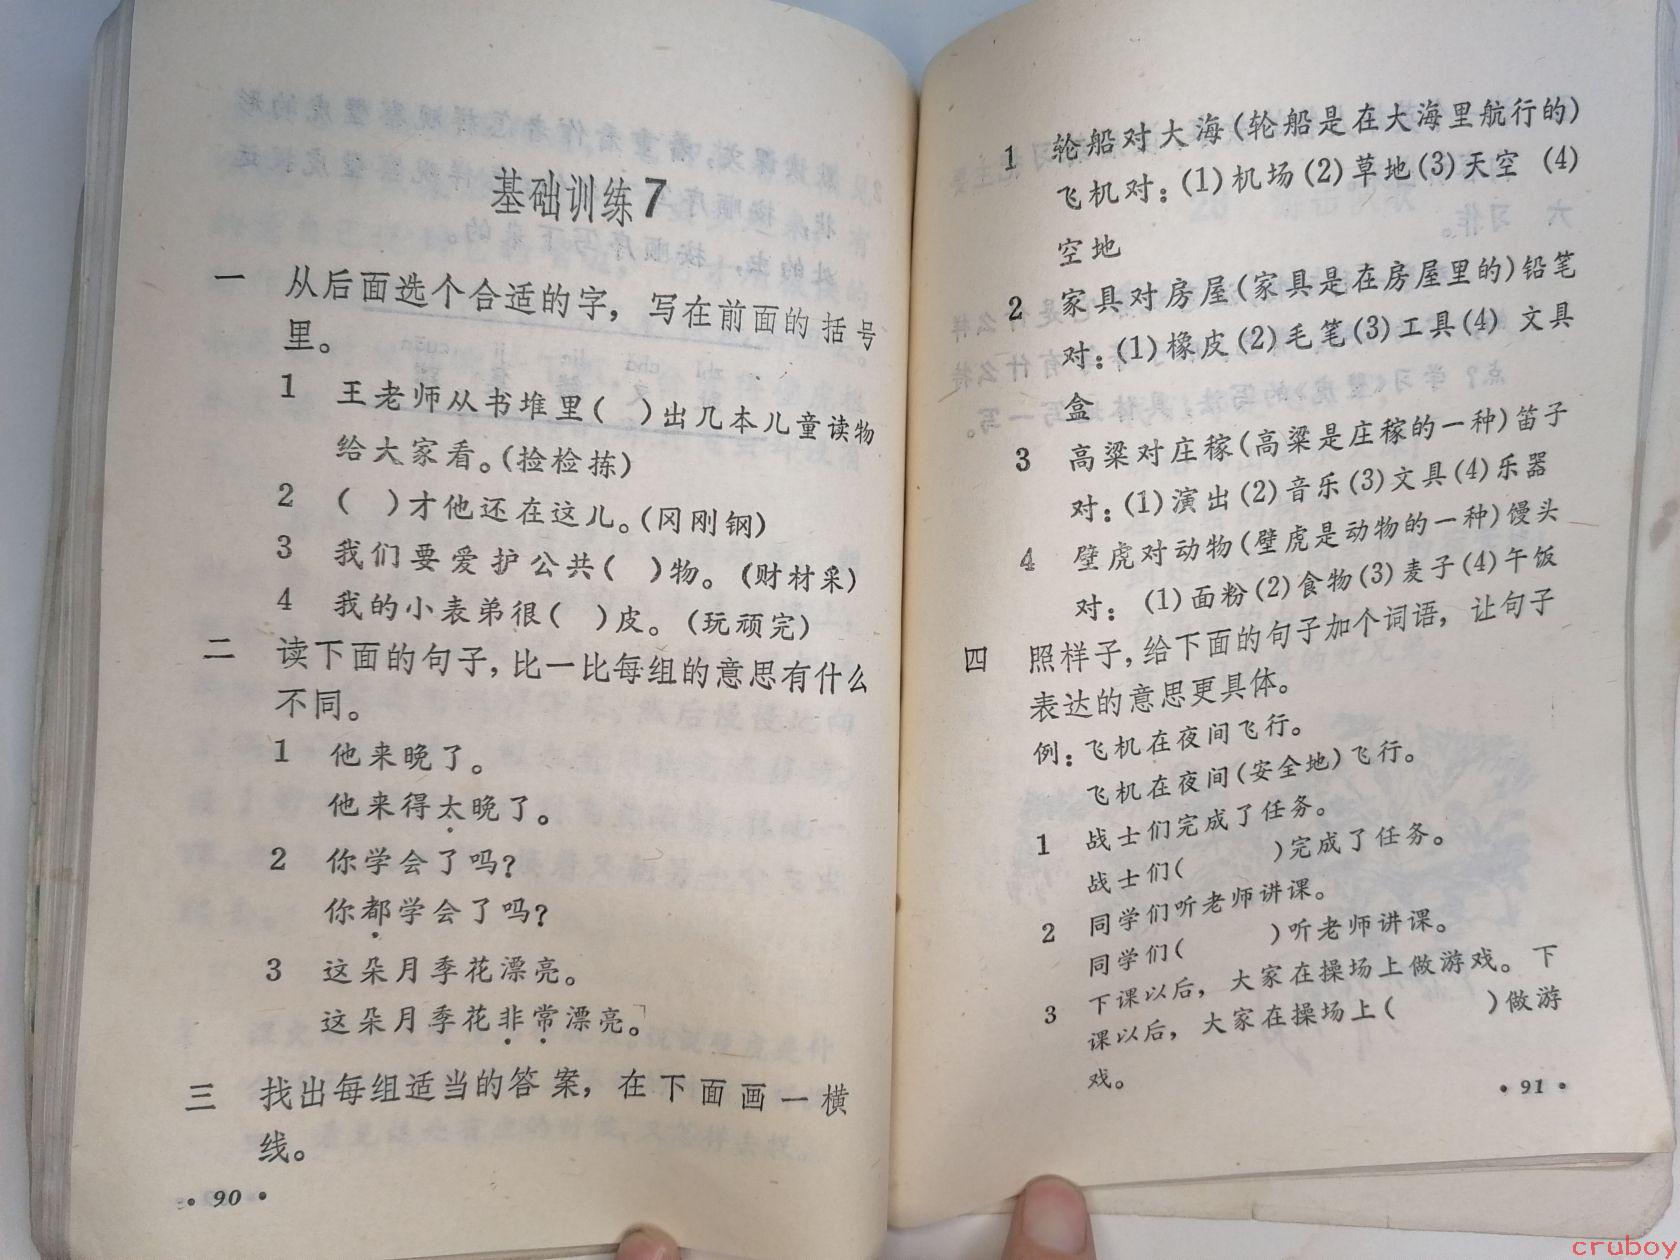 基础训练7
一 从后面选个合适的字，写在前面的括号
里。
1 王老师从书堆里( )出几本儿童读物
给大家看。(捡检拣)
2 ( )才他还在这儿。(冈刚钢)
3 我们要爱护公共( )物。(财材采)
4 我的小表弟很( )皮。(玩顽完)
二 读下面的句子，比一比每组的意思有什么
不同。
1 他来晚了。
他来得太晚了。
2 你学会了吗？
你都学会了吗？
3 这朵月季花漂亮。
这朵月季花非常漂亮。
三 找出每组适当的答案，在下面画一横
线。
• 90 •
1 轮船对大海(轮船是在大海里航行的)
飞机对：(1)机场(2)草地(3)天空 (4)
空地
2 家具对房屋(家具是在房屋里的)铅笔
对：(1)橡皮(2)毛笔(3)工具(4) 文具
盒
3 高粱对庄稼(高粱是庄稼的一种)笛子
对：(1)演出(2)音乐(3)文具(4)乐器
4 壁虎对动物(壁虎是动物的一种)馒头
对：(1)面粉(2)食物(3)麦子(4)午饭
四 照样子，给下面的句子加个词语，让句子
表达的意思更具体。
例：飞机在夜间飞行。
飞机在夜间(安全地)飞行。
1 战士们完成了任务。
战士们( )完成了任务。
2 同学们听老师讲课。
同学们( )听老师讲课。
3 下课以后，大家在操场上做游戏。下
课以后，大家在操场上( )做游
戏。
• 91 •
cruboy